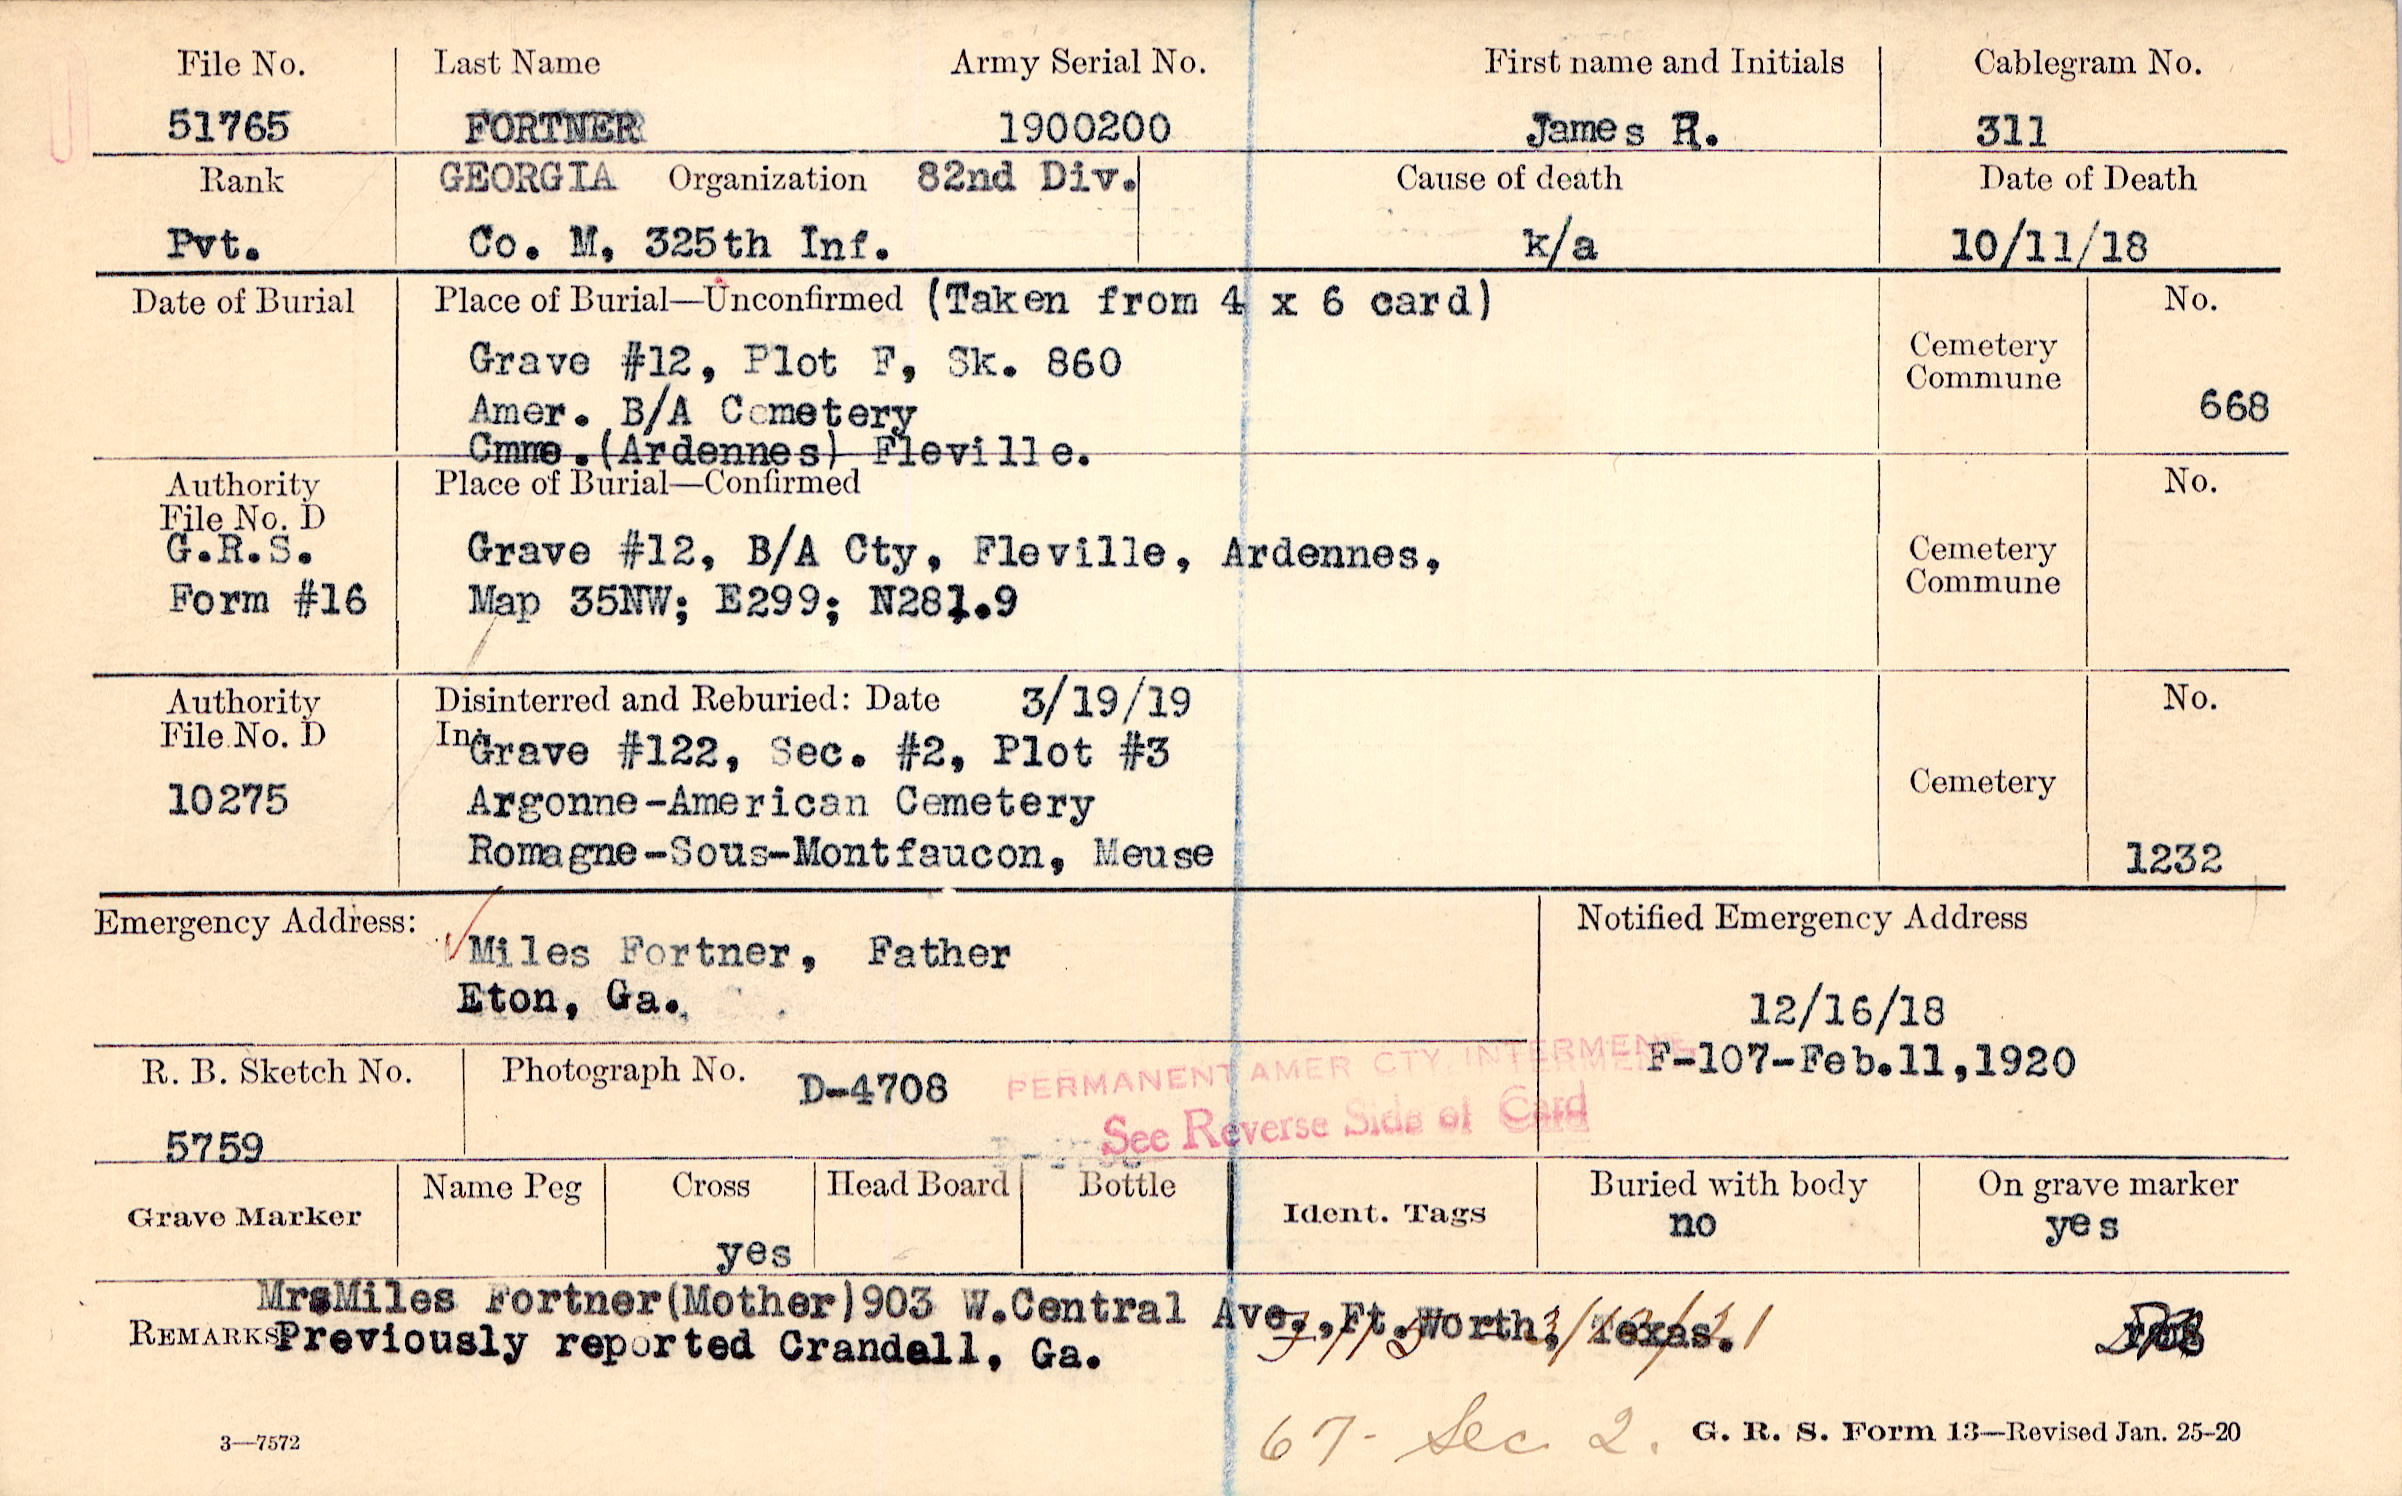 File No. Last Name Army Serial No. First name and Initials Cablegram No.
51765 FORTNER 1900200 James R. 311
Rank GEORGIA Organization 82nd Div. Cause of death Date of Death
Pvt. Co. M, 325th Inf. k/a 10/11/18
Date of Burial Place of Burial—Unconfirmed (Taken from 4 x 6 card) No.
Grave #12, Plot F, Sk. 860 Cemetery
Commune
Amer. B/A Cemetery 668
Cmne.(Ardennes) Fleville.
Authority Place of Burial—Confirmed No.
File No. D
G.R.S. Grave #12, B/A Cty, Fleville, Ardennes, Cemetery
Commune
Form #16 Map 35NW; E299; N281.9
Authority Disinterred and Reburied: Date 3/19/19 No.
File No. D In Grave #122, Sec. #2, Plot #3
Cemetery
10275 Argonne-American Cemetery
Romagne-Sous-Montfaucon, Meuse 1232
Emergency Address: Notified Emergency Address
Miles Fortner, Father
Eton, Ga. 12/16/18
F-107-Feb.11,1920
R. B. Sketch No. Photograph No. D-4708
PERMANENT AMER CTY. INTERMENT
See Reverse Side of Card
5759
Grave Marker Name Peg Cross Head Board Bottle Ident. Tags Buried with body On grave marker
yes no yes
MrsMiles Fortner(Mother)903 W.Central Ave.,Ft.Worth, Texas.
REMARKS Previously reported Crandall, Ga.
67- Sec 2.
3—7572 G. R. S. Form 13—Revised Jan. 25-20